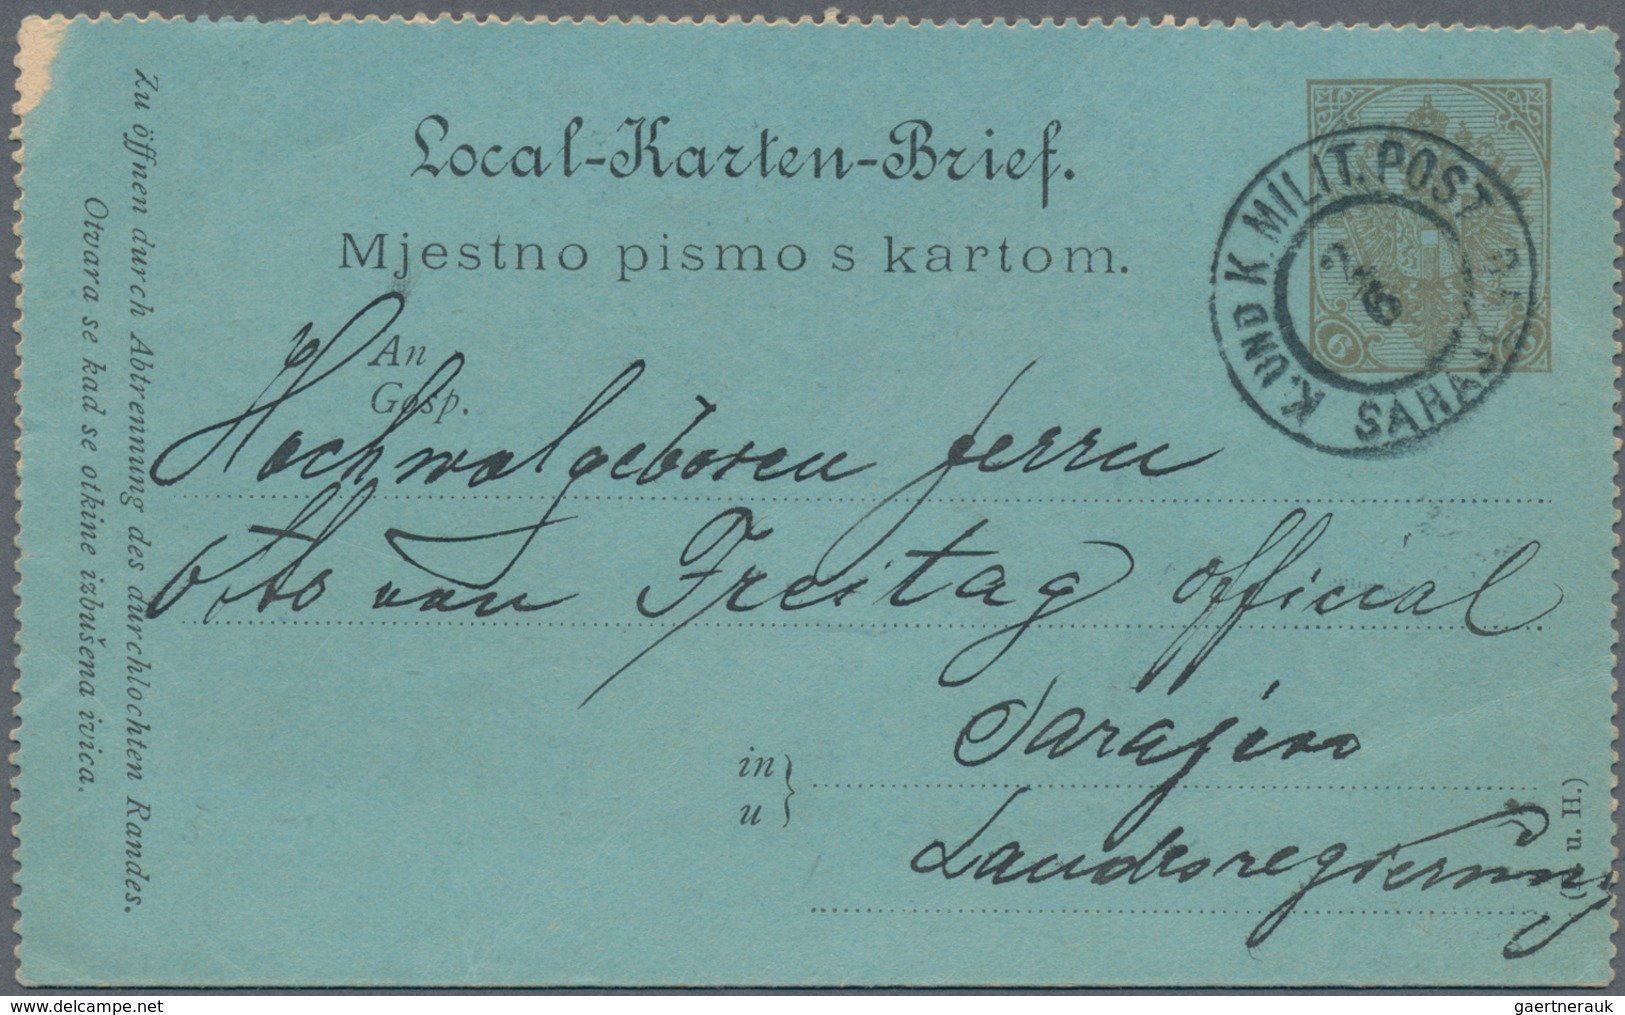 Local-Karten-Brief.
Mjestno pismo s kartom.
K. UND K. MILIT. POST
SARAJEVO
6
6
An
Gosp.
Hochwolgeboren Herrn
Otto von Freitag Official
in
u
Sarajevo
Landesregierung
Zu öffnen durch Abtrennung des durchlochten Randes.
Otvara se kad se otkine izbušena ivica.
u. H.)
gaertnerauk